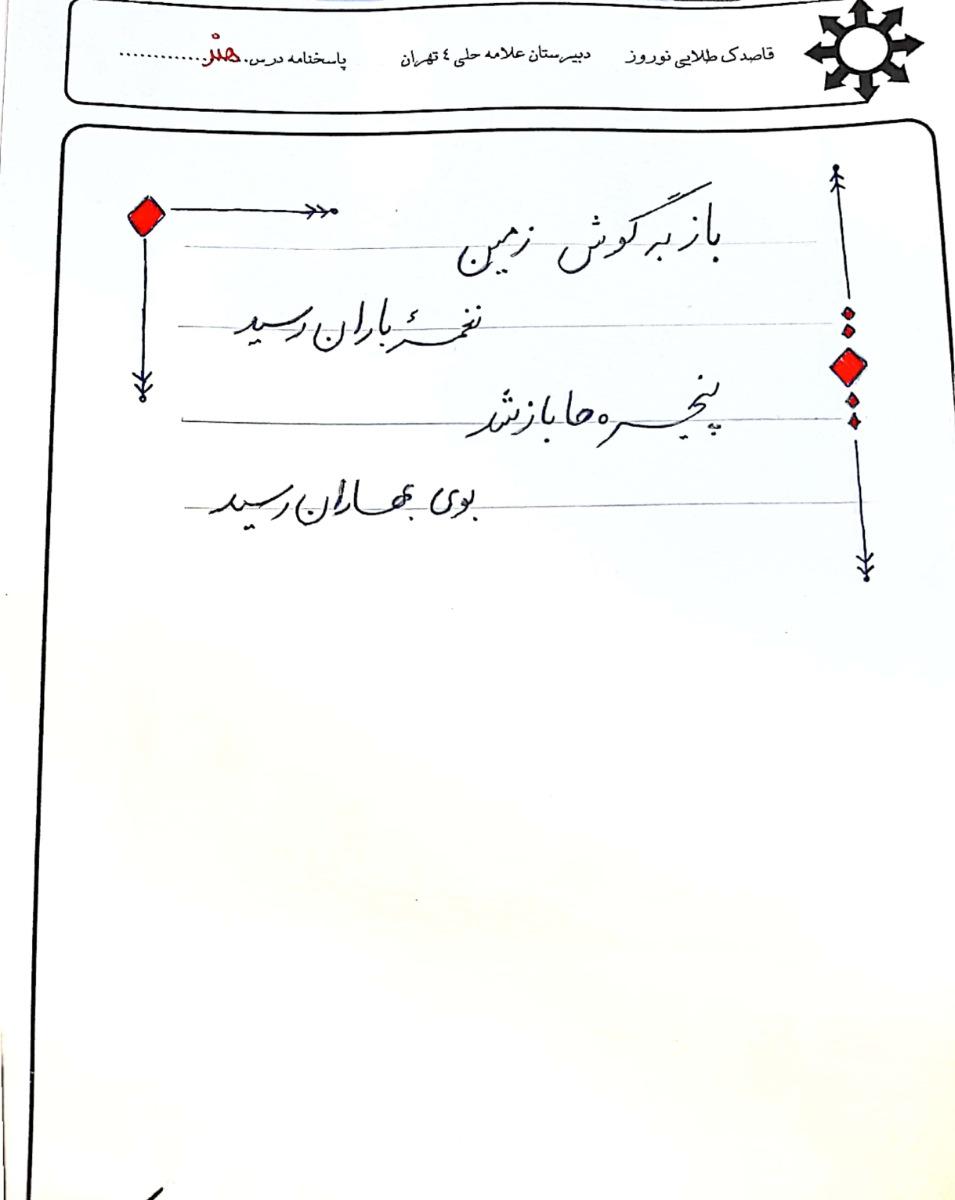 قاصدک طلایی نوروز دبیرستان علامه حلی ٤ تهران پاسخنامه درس. هنر............
باز به گوش زمین
نغمهٔ باران رسید
پنجره ها باز شد
بوی بهاران رسید